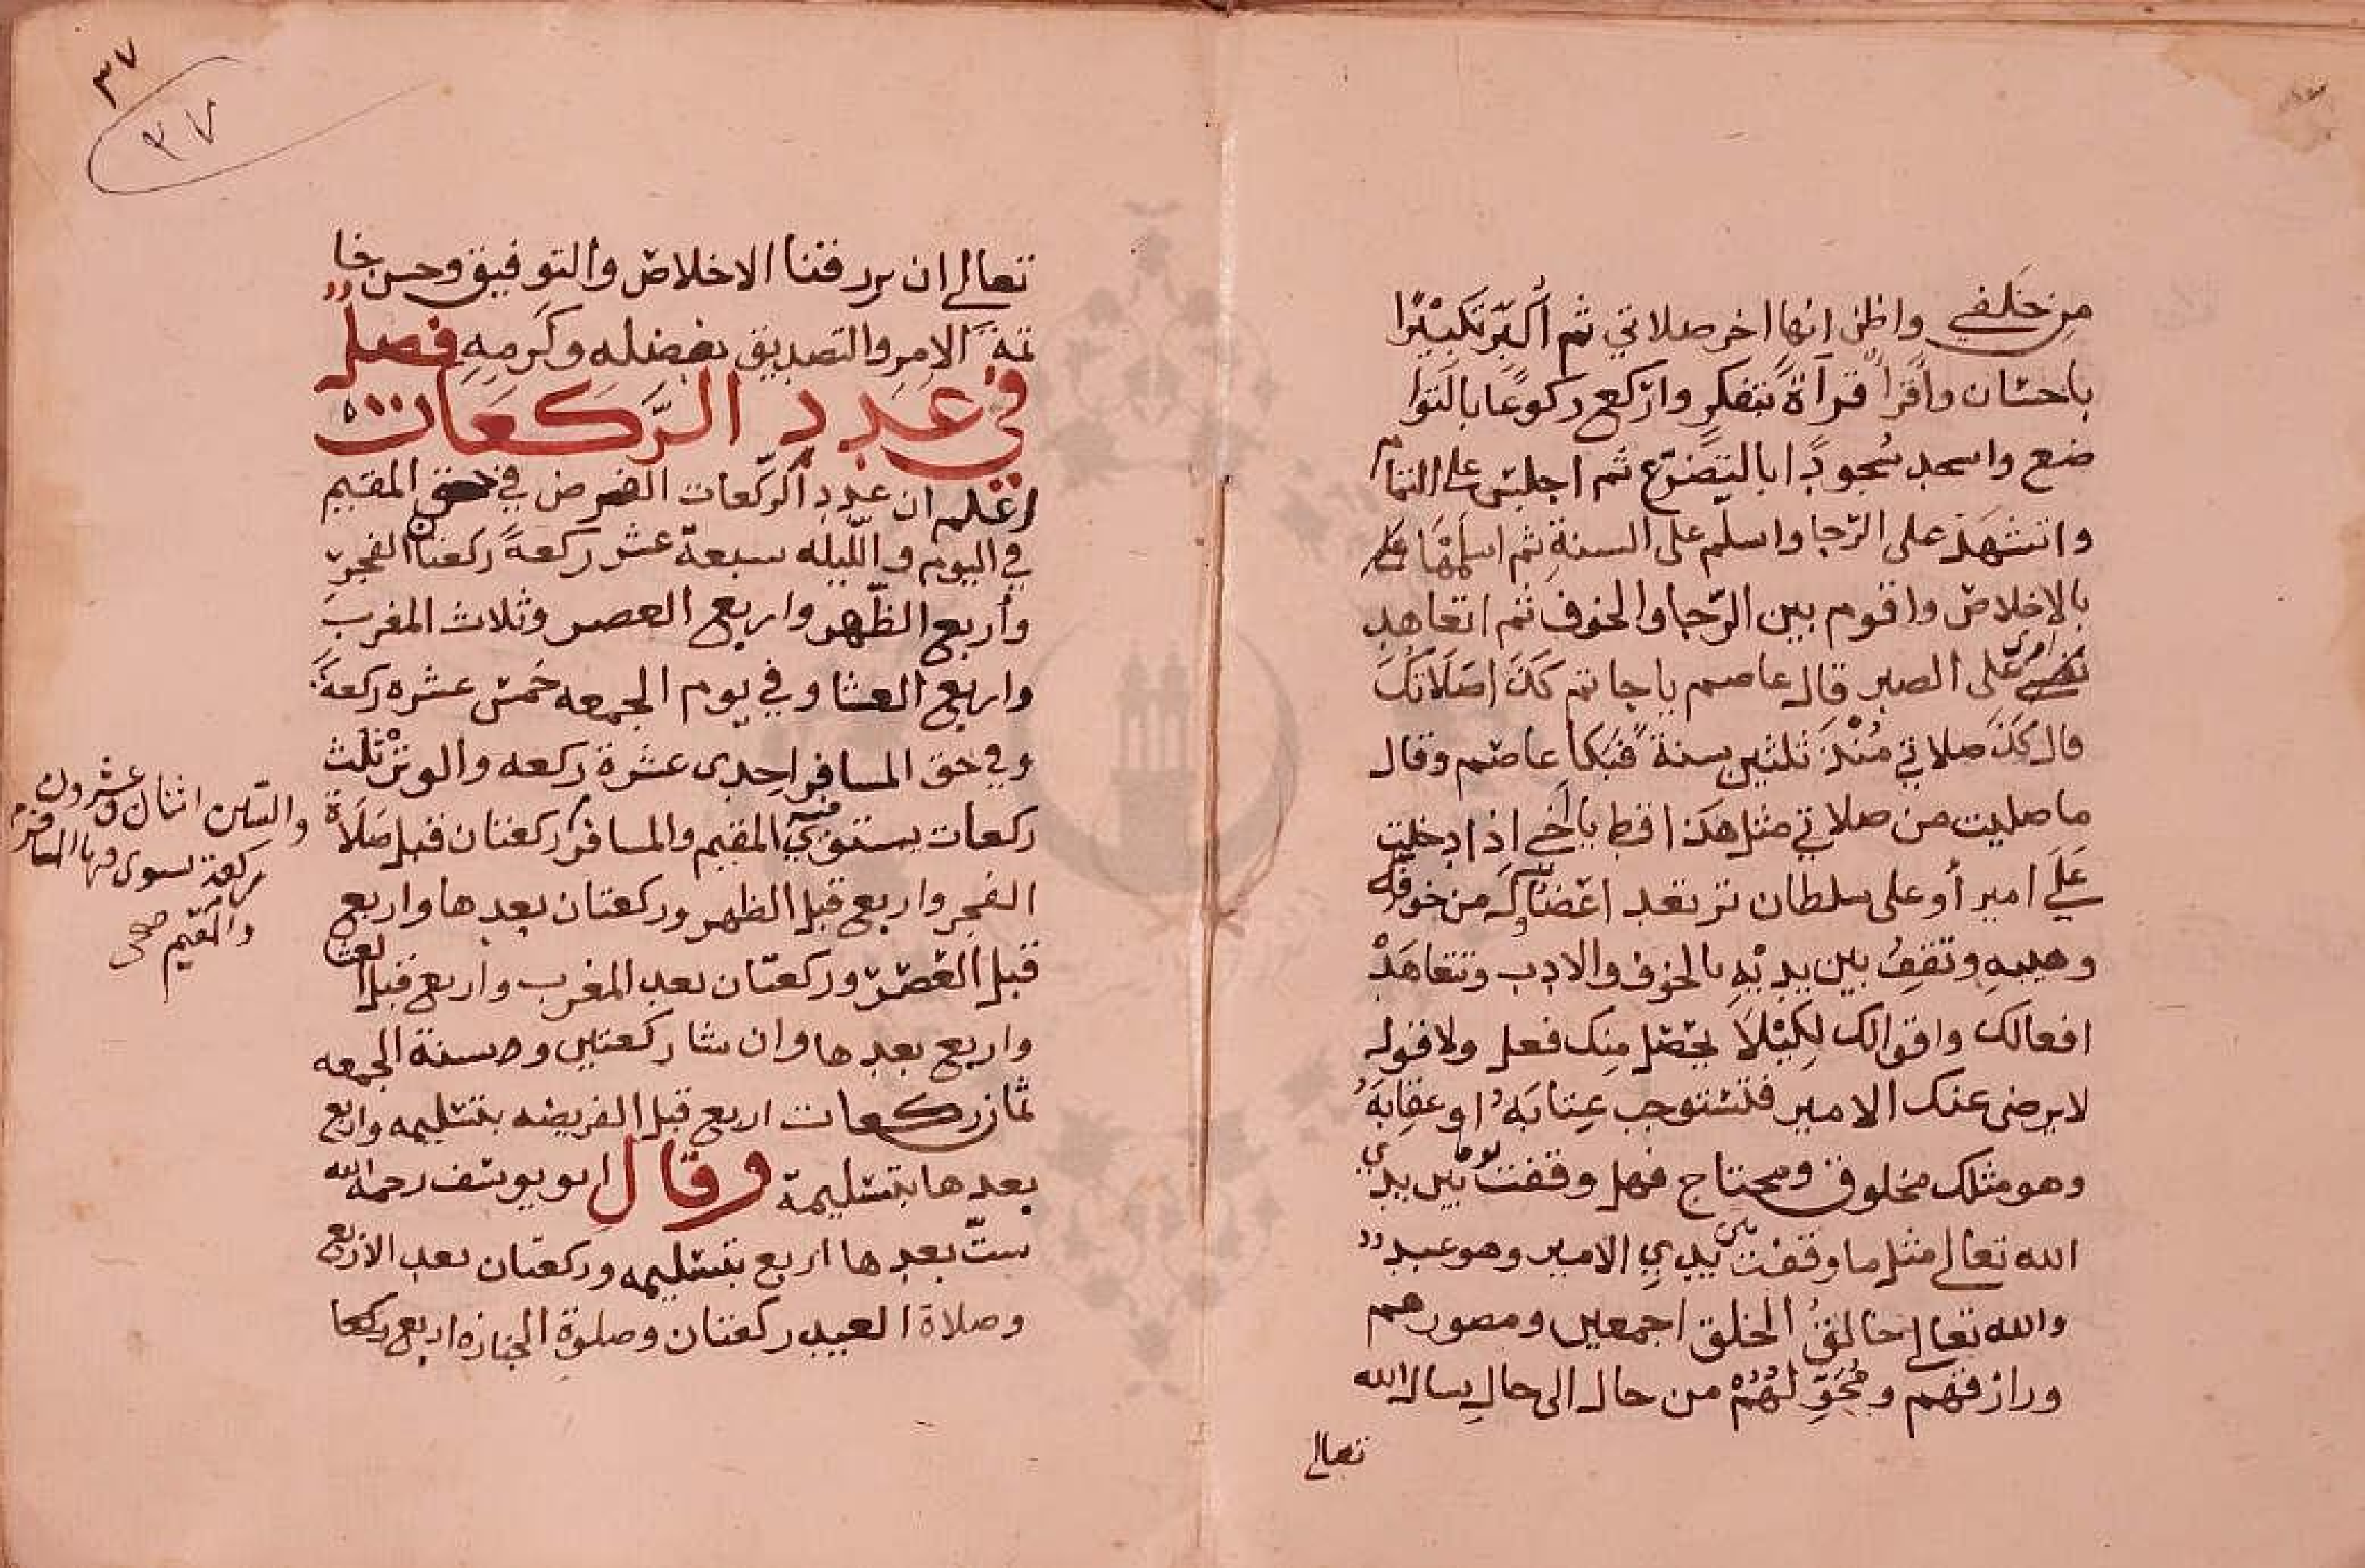 من خلفي واظن انها اخر صلاتي ثم أكبّر تكبيْرًا
باحسان وأقرأ قرآةً بتفكرٍ واركع ركوعًا بالتوا
ضع واسجد سُجودًا بالتضرّع ثم اجلس على التمام
واتشهد على الرّجا واسلم على السنةِ ثم اسلمها
بالاخلاص واقوم بين الرّجا والخوف ثم اتعاهد
على الصبر قال عاصم ياحاتم كَذَا صَلَاتُكَ
قال كَذَا صلاتي مُنْذُ ثلثين سنةً فبَكا عاصم وقال
ما صليت من صلاتي مثل هكذا قط يا أخي اذا دخلت
عَلَى امير أو على سلطان ترتعد اعضاك من خوفه
وهيبهِ وتقفُ بين يديْهِ بالخوف والادب وتتعاهَدْ
افعالك واقوالك لِكَيْلَا يحصل مِنك فعل ولا قول
لا يرضى عنك الامير فتستوجب عِتابَهُ او عقابَهُ
وهو مثلك مخلوق ومحتاج فهل وقفت يوما بين يدي
الله تعالى مثل ما وقفت بين يدي الامير وهو عبد
والله تعالى خالقُ الخلق اجمعين ومصورهم
ورازقهم ومُحَوِّلُهُمْ من حال الى حالٍ نسال الله
تعالى
٣٧
٣٧
تعالى ان يرزقنا الاخلاص والتوفيق وحسن خا
تمة الامرِ والتصديق بفضله وكَرمِهِ فصل
في عَدد الرَّكَعَات
اعلم ان عدد الركّعات الفرض في حق المقيم
في اليوم والليله سبعة عشر ركعةً ركعتان الفجرِ
وأربع الظّهر واربع العصر وثلاث المغرب
واربع العشا وفي يوم الجمعه خمس عشره ركعةً
وفي حق المسافر احدى عشرة ركعه والوترْ ثلث
ركعات يستوي فيه المقيم والمسافر ركعتان قبل صَلَاة
الفجر واربع قبل الظهر وركعتان بعدها واربع
قبل العصر وركعتان بعد المغرب واربع قبل العشا
واربع بعدها وان شا ركعتين وسنة الجمعه
ثمان ركعات اربع قبل الفريضه بتسليمه واربع
بعدها بتسليمة وقال ابو يوسف رحمه الله
ستّ بعدها اربع بتسليمه وركعتان بعد الاربع
وصلاة العيد ركعتان وصلوة الجنازه اربع ركعا
والسنن اثنان وعشرون
ركعة يستوى فيها المسافر
والمقيم صح